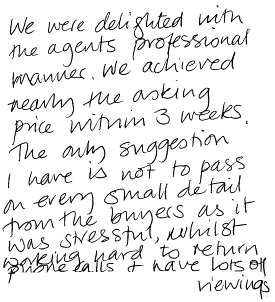 We were delighted with
the agents professional
manner. We achieved
nearly the asking
price within 3 weeks.
The only suggestion
I have is not to pass
on every small detail
from the buyers as it
was stressful, whilst
working hard to return
phone calls & have lots of
viewings